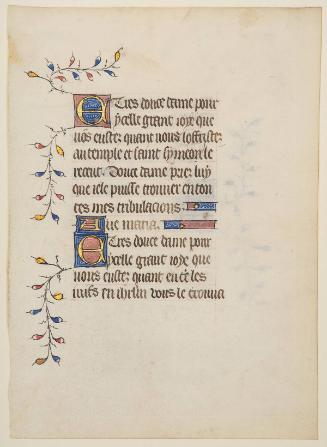 E Tres doulce dame pour
ycelle grant ioye que
vos eustes quant nous l'offristes
au temple et saint symeon le
receut. Doulce dame pries luy
que iele puisse trouuer en tou
tes mes tribulacions.
Aue maria.
E Tres doulce dame pour
ycelle grant ioye que
vous eustes quant entre les
iuifs en ihrlm vous le trouua